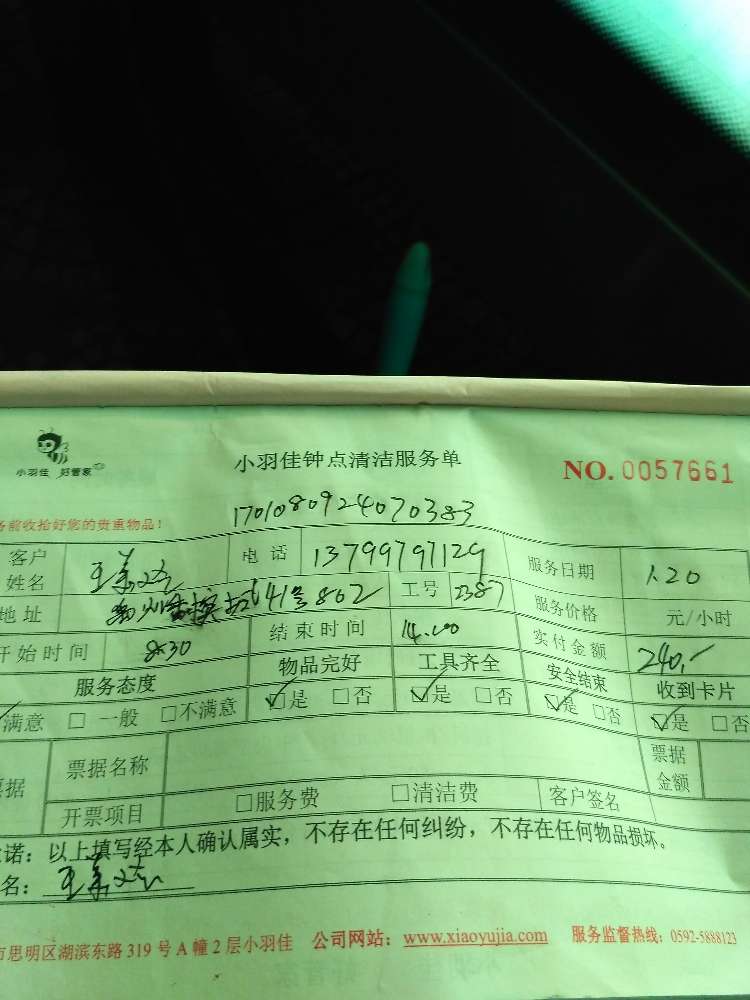 小羽佳 好管家
小羽佳钟点清洁服务单
NO. 0057661
前收拾好您的贵重物品!
1701080924070383
客户姓名 王 电话 13799797129 服务日期 1.20
地址 41号802 工号 2387 服务价格 元/小时
开始时间 8:30 结束时间 14.00 实付金额 240.-
服务态度 物品完好 工具齐全 安全结束 收到卡片
满意 □ 一般 □不满意 ☑是 □否 ☑是 □否 ☑是 □否 ☑是 □否
据 票据名称 票据金额
开票项目 □服务费 □清洁费 客户签名
诺：以上填写经本人确认属实，不存在任何纠纷，不存在任何物品损坏。
名： 王
市思明区湖滨东路 319 号 A 幢 2 层小羽佳 公司网站：www.xiaoyujia.com 服务监督热线：0592-5888123